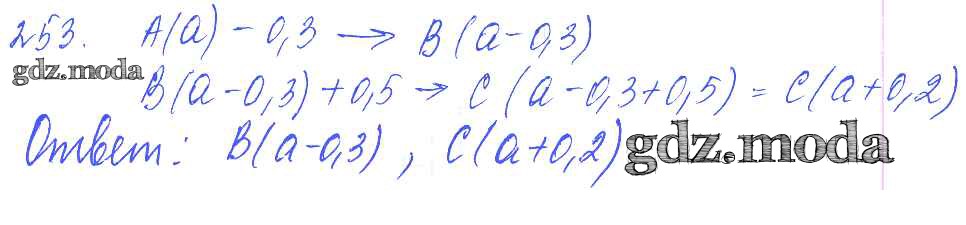 253. A(a) - 0,3 → B(a-0,3)
gdz.moda
B(a-0,3)+0,5 → C(a-0,3+0,5) = C(a+0,2)
Ответ: B(a-0,3), C(a+0,2)
gdz.moda